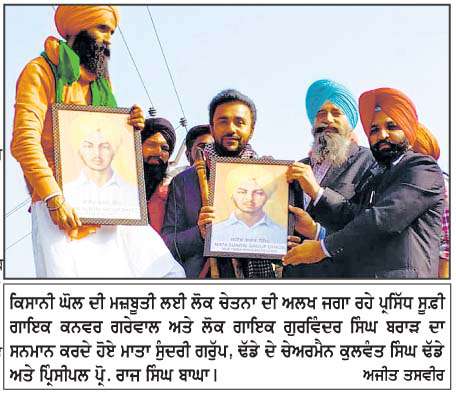 ਕਿਸਾਨੀ ਘੋਲ ਦੀ ਮਜ਼ਬੂਤੀ ਲਈ ਲੋਕ ਚੇਤਨਾ ਦੀ ਅਲਖ ਜਗਾ ਰਹੇ ਪ੍ਰਸਿੱਧ ਸੂਫ਼ੀ
ਗਾਇਕ ਕਨਵਰ ਗਰੇਵਾਲ ਅਤੇ ਲੋਕ ਗਾਇਕ ਗੁਰਵਿੰਦਰ ਸਿੰਘ ਬਰਾੜ ਦਾ
ਸਨਮਾਨ ਕਰਦੇ ਹੋਏ ਮਾਤਾ ਸੁੰਦਰੀ ਗਰੁੱਪ, ਢੱਡੇ ਦੇ ਚੇਅਰਮੈਨ ਕੁਲਵੰਤ ਸਿੰਘ ਢੱਡੇ
ਅਤੇ ਪ੍ਰਿੰਸੀਪਲ ਪ੍ਰੋ. ਰਾਜ ਸਿੰਘ ਬਾਘਾ।
ਅਜੀਤ ਤਸਵੀਰ